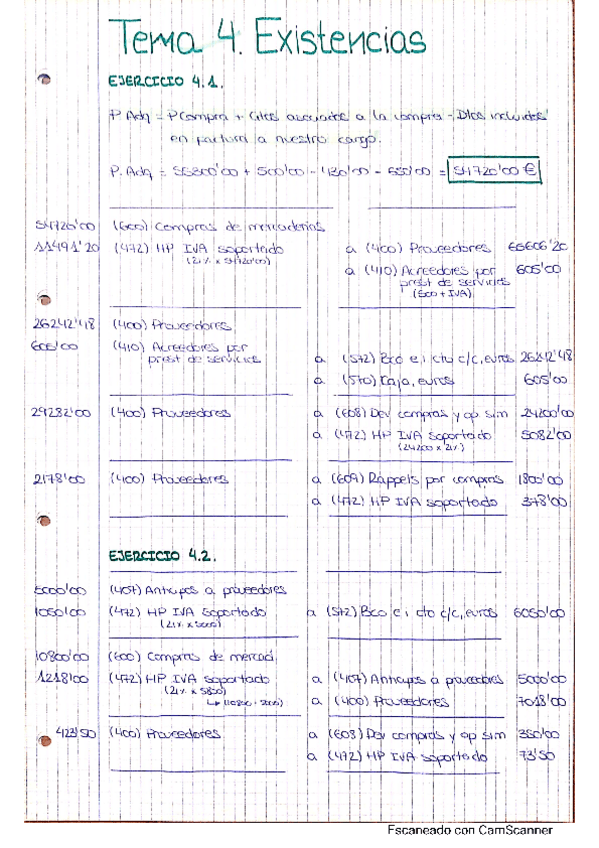 Tema 4. Existencias
EJERCICIO 4.1.
P Adq = P Compra + Gtos asociados a la compra - Dtos incluidos
en factura a nuestro cargo.
P. Adq = 55800'00 + 500'00 - - = 54720'00 €
54720'00 (600) Compras de mercaderías
11491'20 (472) HP IVA soportado a (400) Proveedores 65606'20
(21% x 54720'00) a (410) Acreedores por 605'00
prest de servicios
(500 + IVA)
26242'48 (400) Proveedores
605'00 (410) Acreedores por
prest de servicios a (572) Bco e i cto c/c, euros 26242'48
a (570) Caja, euros 605'00
29282'00 (400) Proveedores a (608) Dev compras y op sim 24200'00
a (472) HP IVA soportado 5082'00
(24200 x 21%)
2178'00 (400) Proveedores a (609) Rappels por compras 1800'00
a (472) HP IVA soportado 378'00
EJERCICIO 4.2.
5000'00 (407) Anticipos a proveedores
1050'00 (472) HP IVA soportado a (572) Bco e i cto c/c, euros 6050'00
(21% x 5000)
10800'00 (600) Compras de mercad.
1218'00 (472) HP IVA soportado a (407) Anticipos a proveedores 5000'00
(21% x 5800) a (400) Proveedores 7018'00
↳ (10800 - 5000)
423'50 (400) Proveedores a (608) Dev compras y op sim 350'00
a (472) HP IVA soportado 73'50
Escaneado con CamScanner